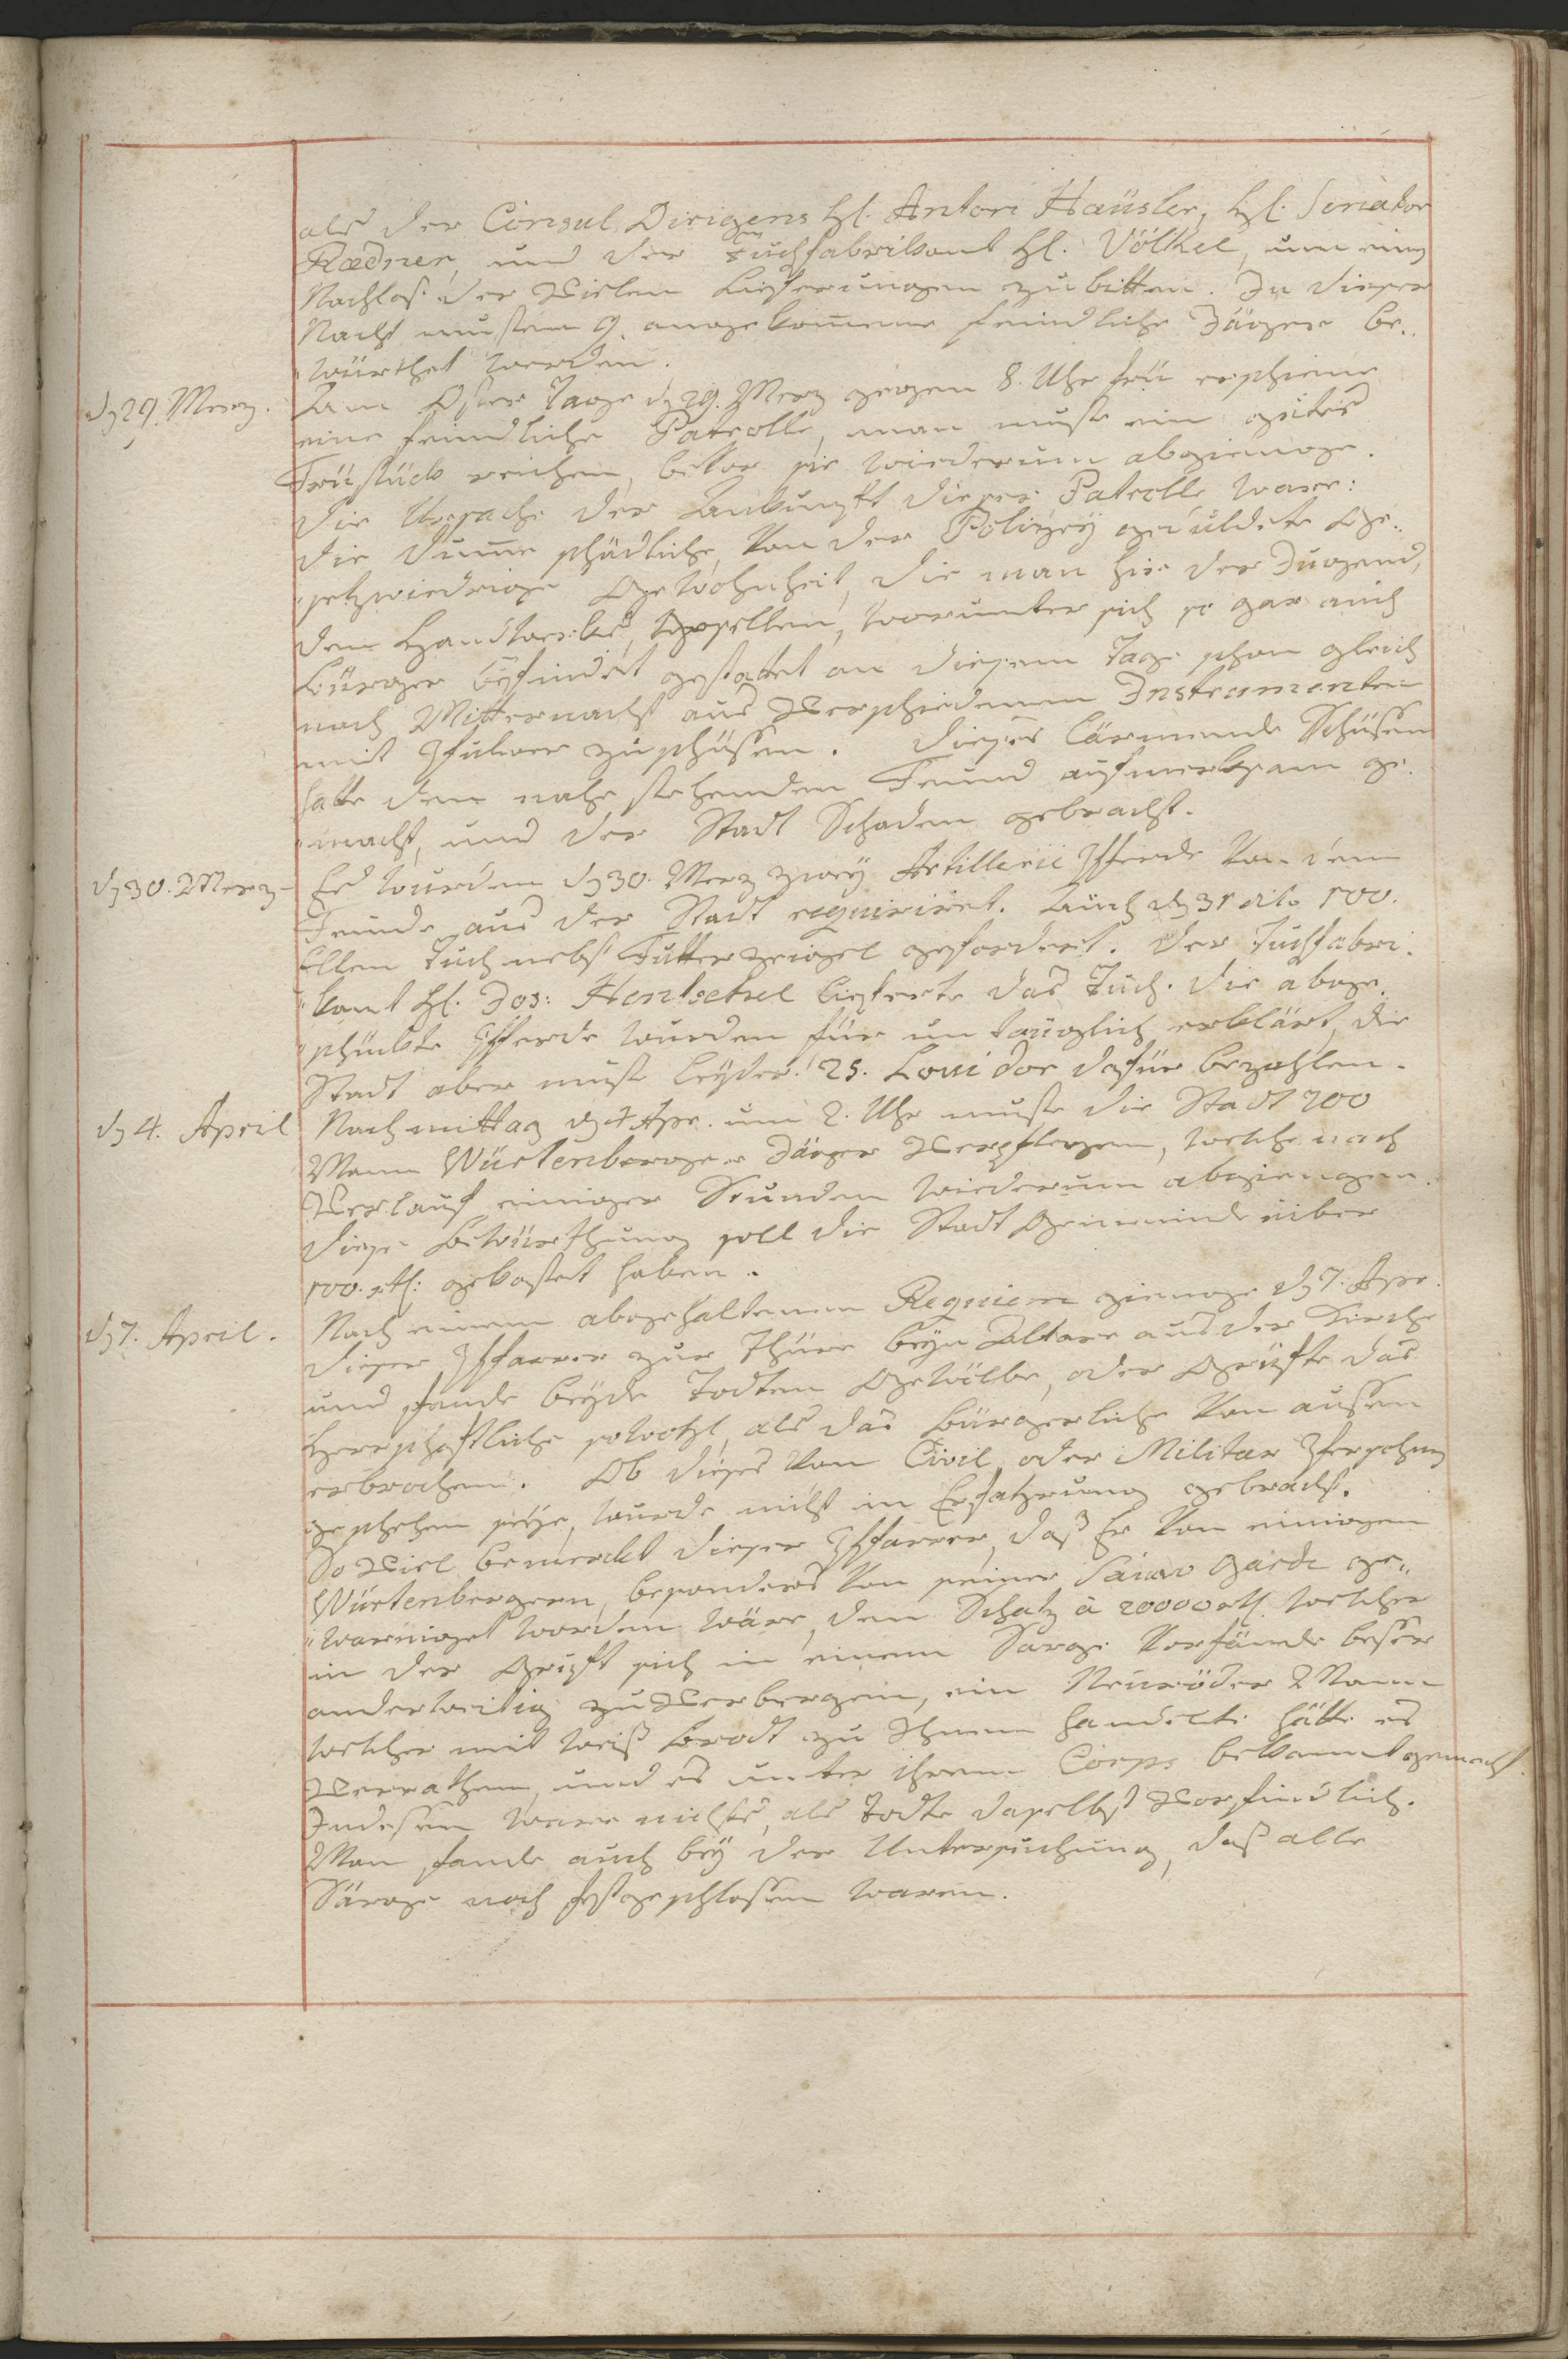 als der Consul Dirigens H. Anton Haüsler, H. Senator
Rædner, und der Tuchfabrikant H. Völkel, um einen
Nachlas der vielen Lieferungen zu bitten. In dieser
Nacht musten 9. angekomene feindliche Jäger be„
„würthet werden.
dn 29. Merz. Am Oster Tage dn 29. Merz gegen 8. Uhr frü erschiene
eine feindliche Patrolle, man muste ein gutes
Früstück reichen, bevor sie wiederum abgienge.
Die Ursache der Ankunft dieser Patrolle ware:
die dume schädliche, von der Policey geduldete Ge„
„setzwiedrige Gewohnheit, die man hir der Jugend,
den Handwerks Gesellen, worunter sich so gar auch
Bürger befinden gestattet an diesem Tage schon gleich
nach Mitternacht aus verschiedenen Instrumenten
mit Pfulver zuschüssen. Dieses lärmende Schüssen
hatte den nahe stehenden Feind aufmerksam ge„
„macht, und der Stadt Schaden gebracht.
dn 30. Merz Es wurden dn 30. Merz zwey Artillerie Pferde von dem
Feinde aus der Stadt requiriret. Auch dn 31 dito 100.
Ellen Tuch nebst Futter gefordert. Der Tuchfabri„
„kant H. Jos: Hentschel lieferte das Tuch. Die abge„
„schickte Pferde wurden für un tauglich erklärt, die
Stadt aber muste leyder! 25. Loui dor dafür bezahlen.
dn 4. April Nachmittag dn 4 Apr. um 2. Uhr muste die Stadt 200
Mann Würtenberger Jäger verpflegen, welche nach
Verlauf einiger Stunden wiederum abgiengen.
Diese Bewürthung soll die Stadt Gemeinde über
100. rth: gekostet haben.
dn 7. April. Nach einem abgehaltenen Requiem gienge dn 7. Apr.
dieser Pfarrer zur Thüre beym Altare aus der Kirche
und fande beyde Todten Gewölbe, oder Grüfte das
Herschaftliche sowohl, als das Bürgerliche von aussen
erbrochen. Ob dieses von Civil oder Militar Persohnen
geschehen seye, wurde nicht in Erfahrung gebracht.
So viel bemerckt dieser Pfarrer, daß Er von einigen
Würtenbergern, besonders von seiner Sauv Garde ge„
„warniget worden wäre, den Schatz à 20000 rth. welcher
in der Gruft sich in einem Sarge vorfände besser
anderweitig zu verbergen, ein Neuröder Mann
welcher mit weiß Brodt zu Ihnen handelte hätte es
verrathen, und es unter ihrem Corps bekannt gemacht.
Indessen ware nichts, als Todte daselbst vorfindlich.
Man fande auch bey der Untersuchung, daß alle
Särge noch festgeschlossen waren.